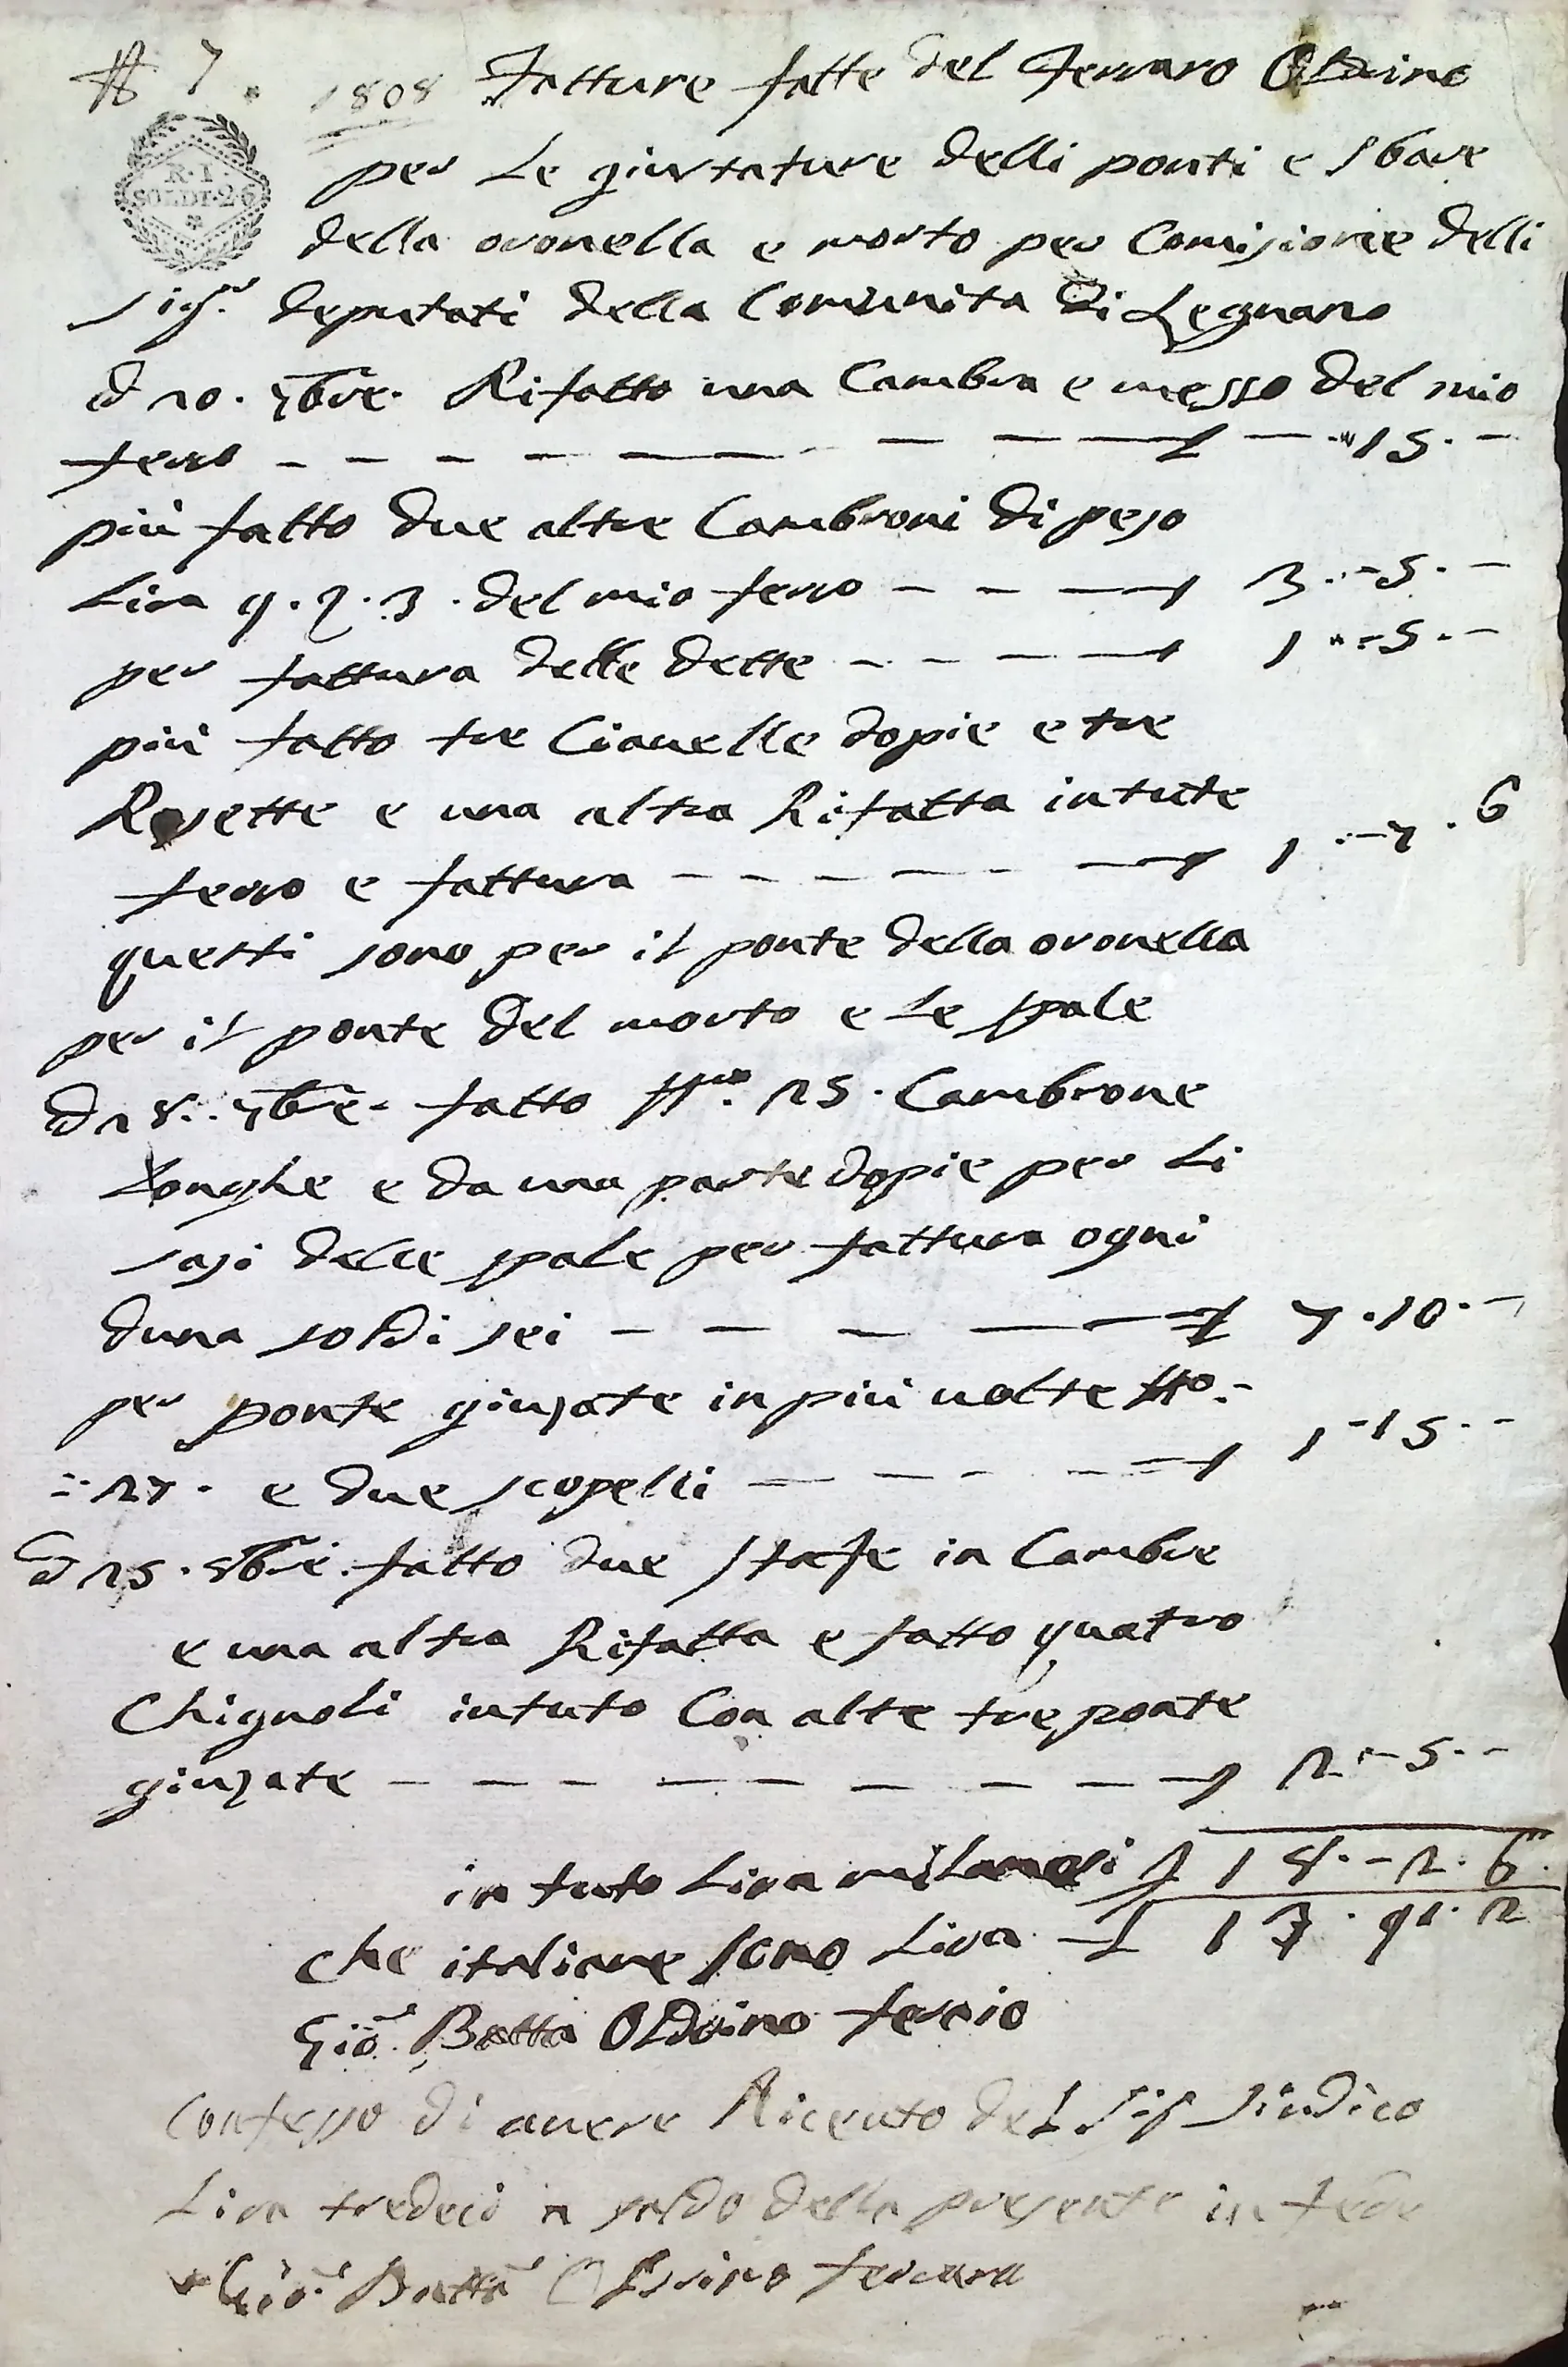 N 7.
1808 Fatture fatte del Ferraro Oldvino
R. I
SOLDI. 2. 6
per Le giustature delli ponti e sbare
della oronella e morto per Comisione delli
sigr. deputati della Comunita di Legnano
d 10. 7bre. Rifatto una Cambra e messo del mio
ferro — — — — — — £ — " 15. —
più fatto due altre Cambroni di peso
Lira 9. 2. 3. del mio ferro — — — 3. — 5. —
per fattura delle dette — — — — 1 — 5. —
più fatto tre Cianelle dopie e tre
Rosette e una altra Rifatta in tute
ferro e fattura — — — — — 1. — 7. 6
questi sono per il ponte della oronella
per il ponte del morto e Le spale
d 18. 7bre. fatto No. 25. Cambrone
Longhe e da una parte dopie per Li
sasi delle spale per fattura ogni
duna soldi sei — — — — £ 7. 10. —
per ponte giuzate in più uolte No. —
27. e due scopelli — — — — 1 — 15. —
d 25. 8bre. fatto due stafe in Cambre
e una altra Rifatta e fatto quatro
Chignoli in tuto Con alte tre ponte
giuzate — — — — — — — — 2. — 5. —
in tuto Lira milanesi £ 18. — 2. 6.
che italiane sono Lira £ 13. 91. 2
Gio. Batta Oldvino feraio
Confesso di auere Riceuto del Sig Sindico
Lira tredeci a saldo della presente in fede
Gio. Batta Oldvino